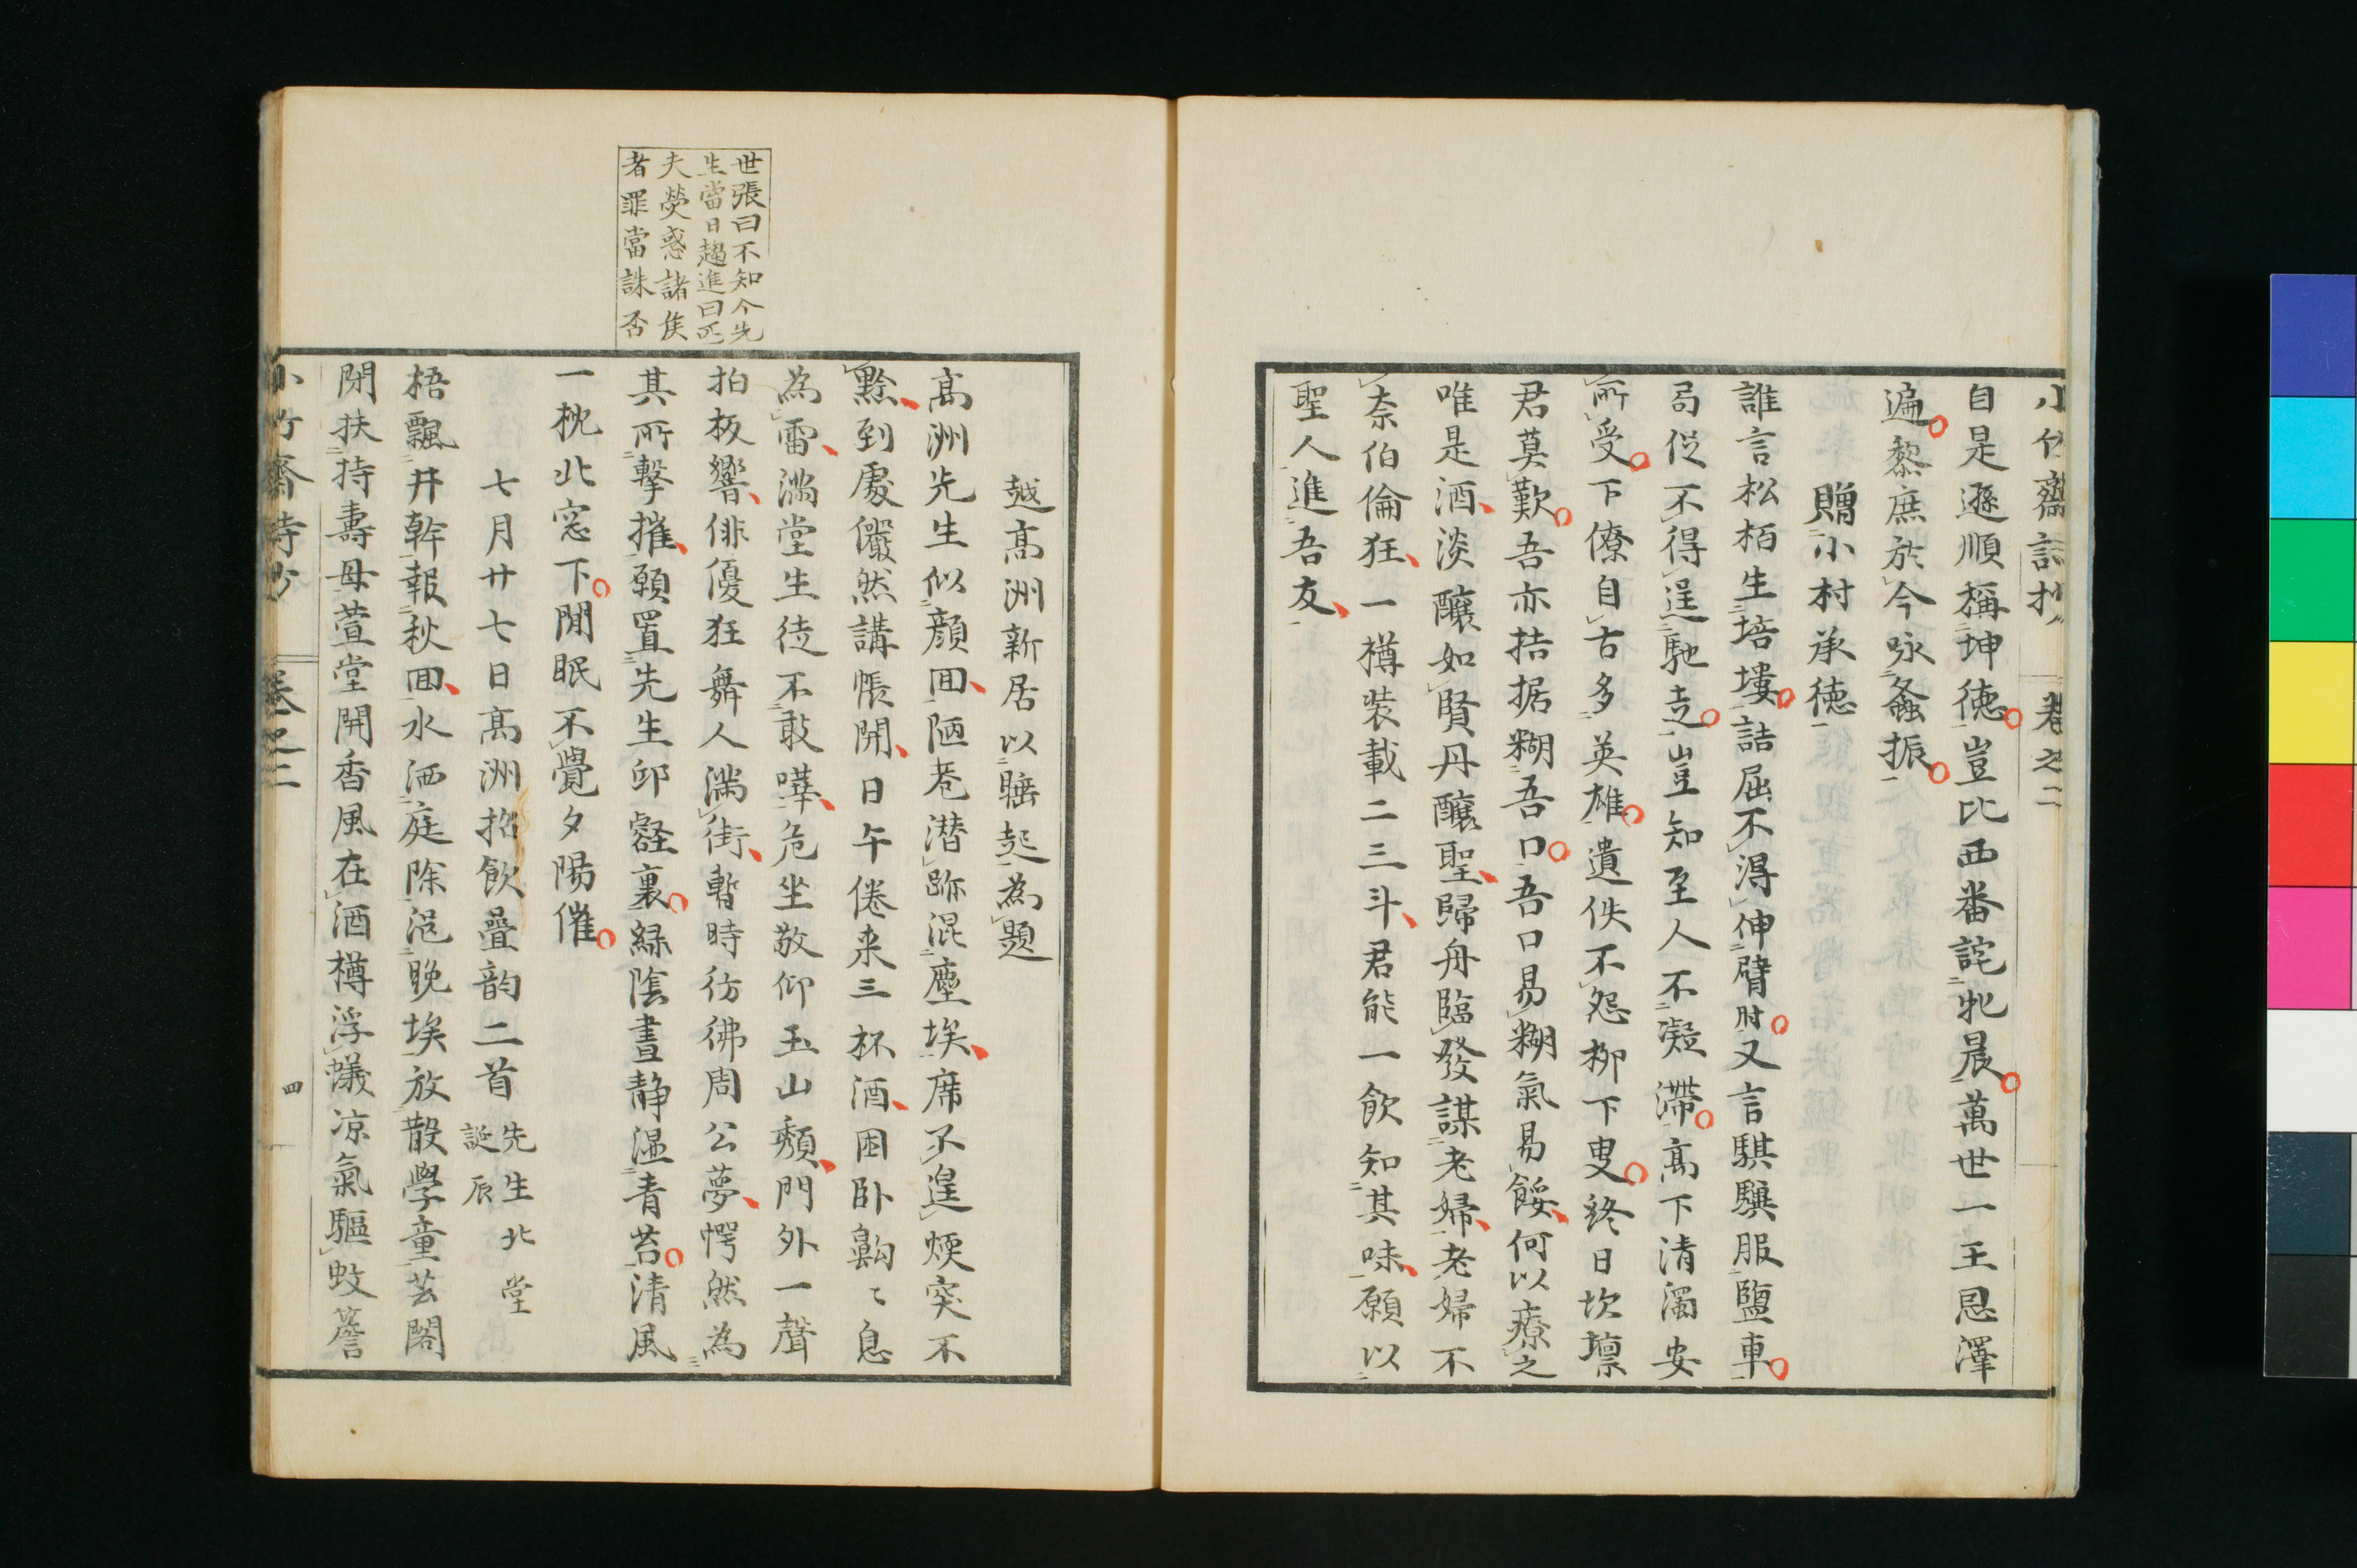 小竹齋詩抄 卷之二
自是遜順稱坤德豈比西番詫牝晨萬世一王恩澤
遍黎庶於今咏螽振
贈小村承德
誰言松栢生培塿詰屈不得伸臂肘又言騏驥服鹽車
局促不得逞馳走豈知至人不凝滯高下清濁安
所受下僚自古多英雄遺佚不怨柳下叟終日坎壈
君莫歎吾亦拮据糊吾口吾口易糊氣易餒何以療之
唯是酒淡釀如賢丹釀聖歸舟臨發謀老婦老婦不
奈伯倫狂一樽裝載二三斗君能一飲知其味願以
聖人進吾友
世張曰不知今先
生當日趨進曰匹
夫熒惑諸侯
者罪當誅否
越高洲新居以睡起為題
高洲先生似顏回陋巷潛跡混塵埃席不遑煗突不
黔到處儼然講帳開日午倦来三杯酒困卧齁〻息
為雷滿堂生徒不敢嘩危坐敬仰玉山頹門外一聲
拍板響俳優狂舞人滿街暫時彷彿周公夢愕然為
其所擊摧願置先生卭壑裏綠陰晝靜溫青苔清風
一枕北窓下閒眠不覺夕陽催
七月廿七日高洲招飲疊韵二首 先生北堂
誕辰
梧飄井幹報秋回水洒庭除浥晚埃放散學童芸閣
閉扶持壽母萱堂開香風在酒樽浮蟻凉氣驅蚊簷
小竹齋詩抄 卷之二 四